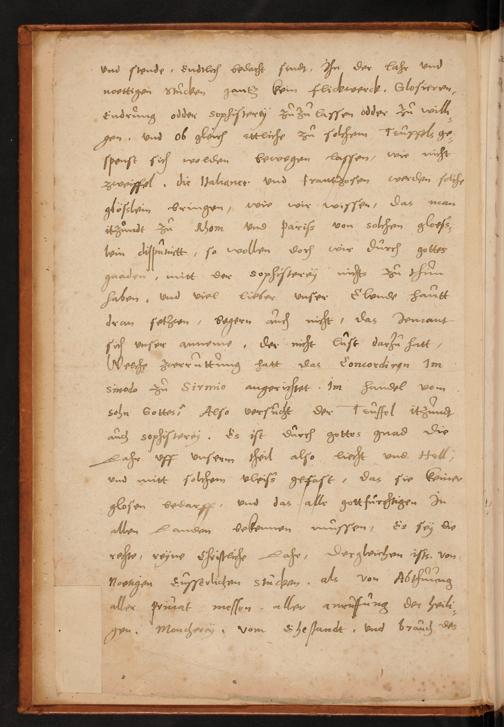 und stende, Endtlich bedacht sindt, Jhn der Lahr und
noettigen stücken gantz kein flickwerck, Glosieren,
Endrung odder sophisterej zu zu lassen odder zu willi-
gen, und ob gleich ettliche zu solchem Teuffels ge-
spenst sich wolden bewegen lassen, wie nicht
zweiffel, die Italianer und frantzosen werden solche
gloslein bringen, wie wir wissen, das man
itzundt zu Rhom und Pariss von solchen gloess-
lein disputirtt, so wollen doch wir durch gottes
gnaden, mitt der sophisterej nichts zu thun
haben, und viel lieber unser Elende hautt
dran sethzen, begern auch nicht, das Jemant
sich unser anneme, der nicht lust darzu hatt,
Welche zerruttung hatt das Concordiren Im
sinodo zu Sirmio angerichtet. Im handel vom
sohn Gottes? Also versucht der Teuffel itzundt
auch sophisterej. Es ist durch gottes gnad die
Lahr uff unserm theil also liecht und Hell,
und mitt solchem vleiss gefast, das sie keiner
glosen bedarff, und das alle gottfürchtigen In
allen Landen bekennen müssen, Es sey die
rechte, reyne Christliche Lahr, dergleichen ists von
Noetigen Eusserlichen stucken, als von Abthuung
aller privat messen, aller anruffung der heili-
gen, Moncherej, vom Ehestandt, und brauch des